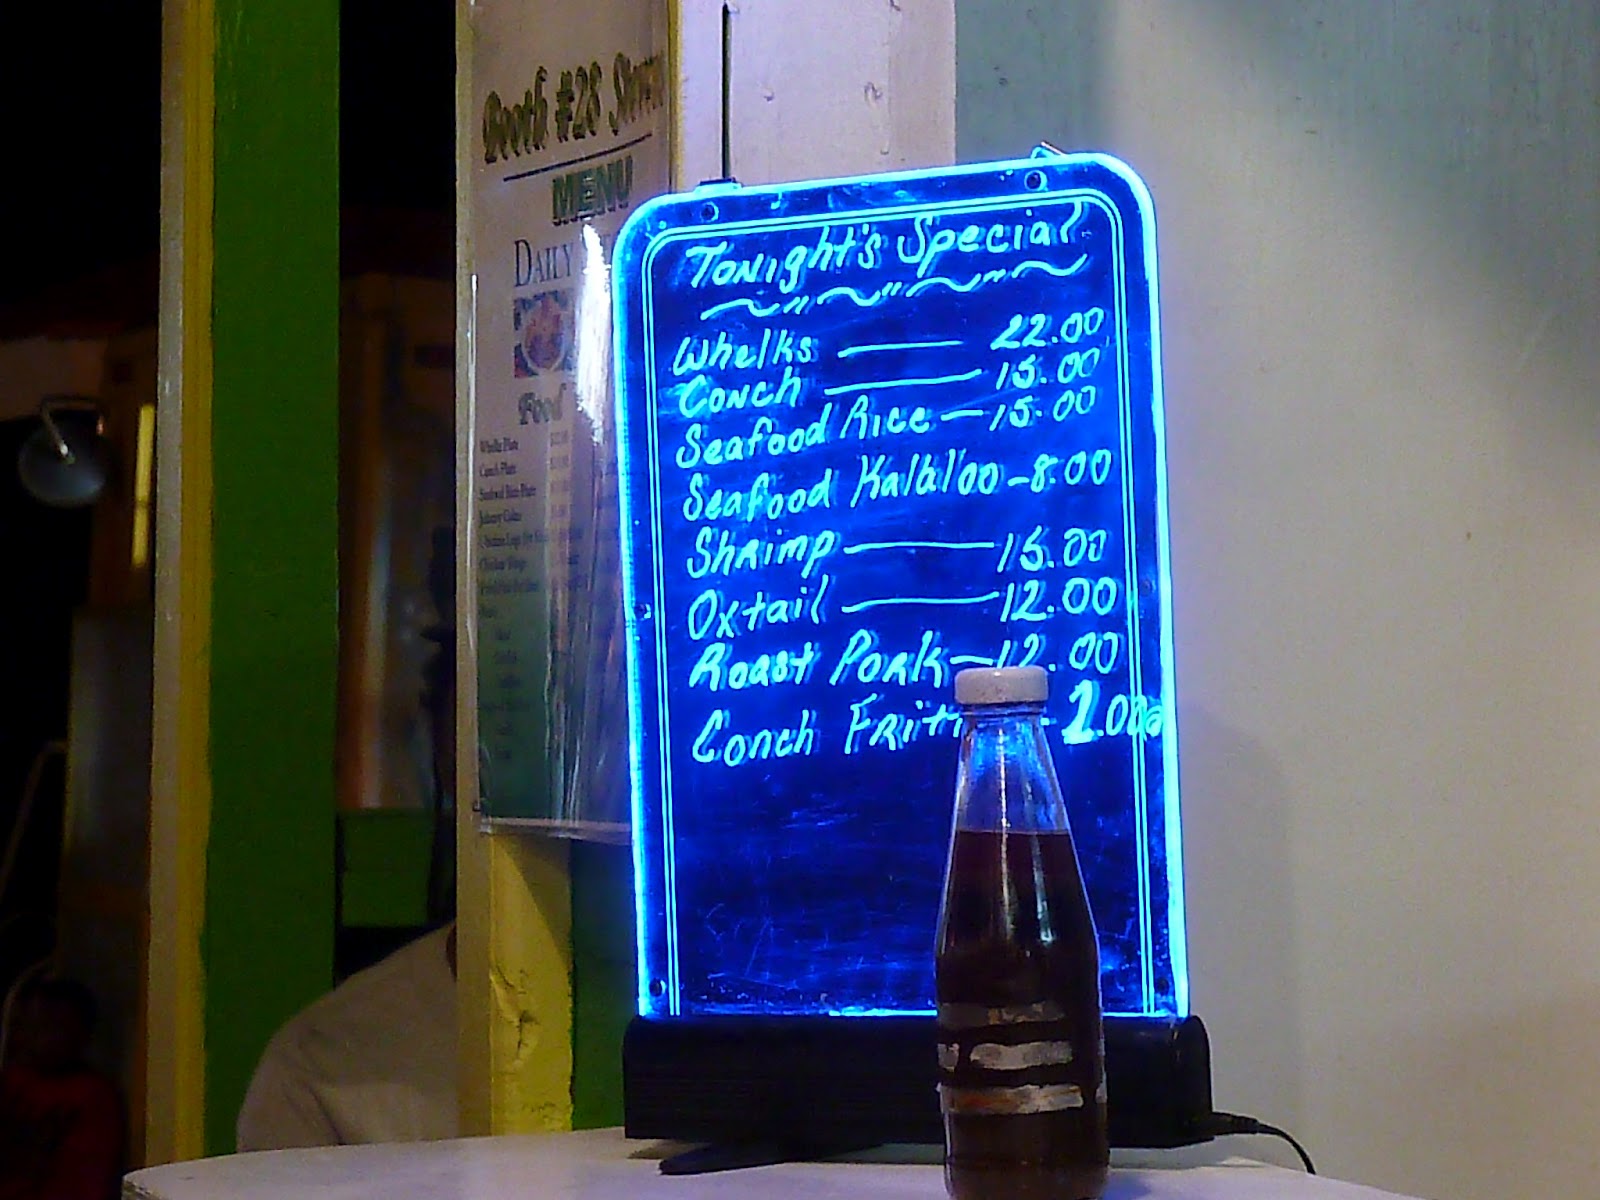 Booth #28
MENU
DAILY
Food
Whelks Plate
Conch Plate
Seafood Rice Plate
Johnny Cakes
Tonight's Special
Whelks — 22.00
Conch — 15.00
Seafood Rice — 15.00
Seafood Kalaloo - 8.00
Shrimp — 15.00
Oxtail — 12.00
Roast Pork — 12.00
Conch Fritt - 1.00